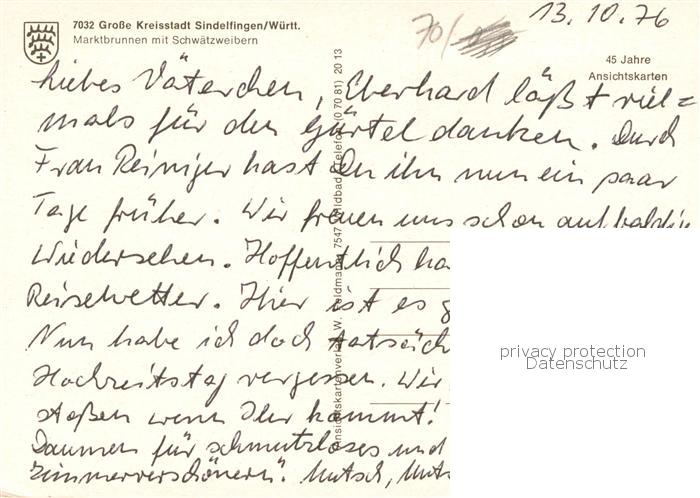 13.10.76
70/
7032 Große Kreisstadt Sindelfingen/Württ.
Marktbrunnen mit Schwätzweibern
45 Jahre
Ansichtskarten
Liebes Väterchen, Eberhard läßt viel=
mals für den Gürtel danken. Durch
Frau Reiniger hast Du ihn nun ein paar
Tage früher. Wir freuen uns schon auf baldig
Wiedersehen. Hoffentlich ha
Reisewetter. Hier ist es g
Nun habe ich doch tatsäch
Hochzeitstag vergessen. Wir
stoßen wenn Ihr kommt!
Daumen für schmutzloses und
Zimmerverschönern". Mutsch, Muts
Ansichtskartenverlag W. Feldmann 7547 Wildbad Telefon (0 70 81) 20 13
privacy protection
Datenschutz